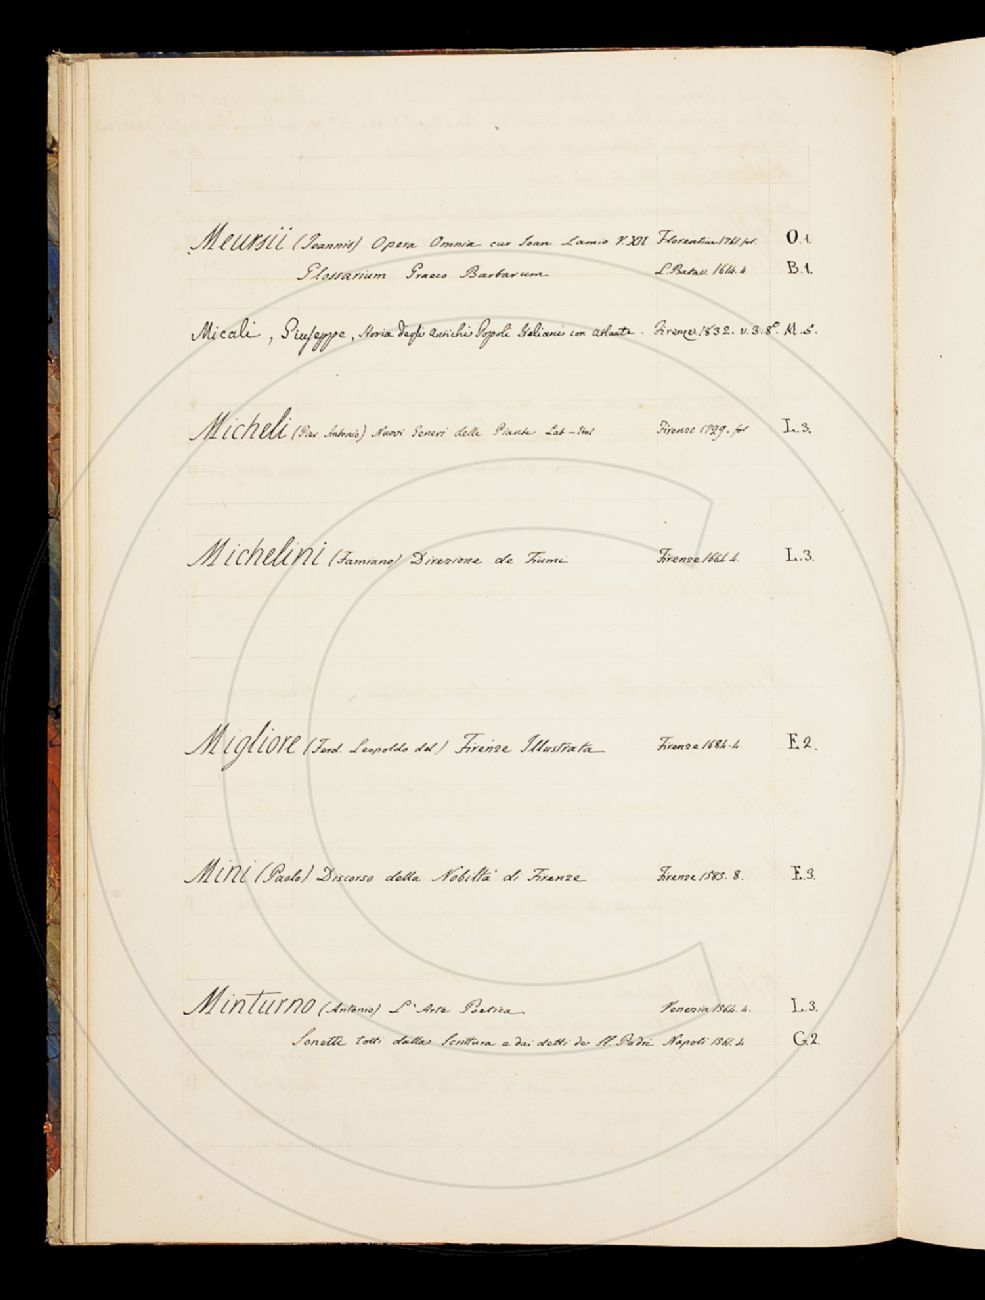 Meursii (Joannis) Opera Omnia cur Joan Lamio V. XII Florentiae 1741 fol. O.1.
Glossarium Graeco Barbarum L. Batav. 1614. 4 B.1.
Micali, Giuseppe, Storia degli antichi Popoli Italiani con atlante. Firenze 1832. v. 3. 8º. M.5.
Micheli (Pier Antonio) Nuovi Generi delle Piante Lat-Ital Firenze 1729. fol L.3.
Michelini (Famiano) Direzione de Fiumi Firenze 1664 4. L.3.
Migliore (Ferd. Leopoldo del) Firenze Illustrata Firenze 1684. 4 E.2.
Mini (Paolo) Discorso della Nobiltà di Firenze Firenze 1593. 8. E.3.
Minturno (Antonio) L'Arte Poetica Venezia 1564. 4. L.3.
Sonetti tolti dalla Scrittura e dai detti de SS. Padri Napoli 1561. 4 G.2.